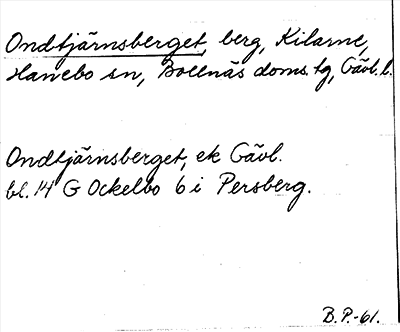 Ondtjärnsberget, berg, Kilarne,
Hanebo sn, Bollnäs doms. tg, Gävl. l.
Ondtjärnsberget, ek Gävl.
bl. 14 G Ockelbo 6 i Persberg.
B.P.-61.